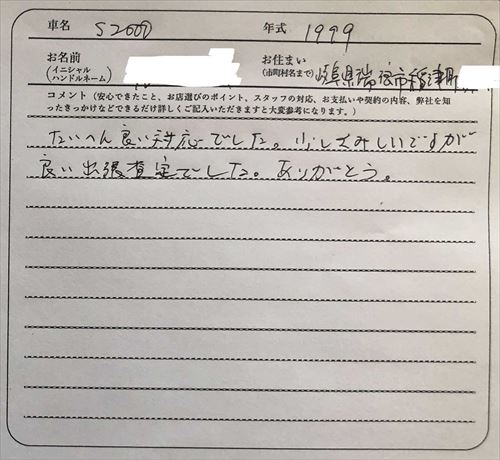 車名 S2000 年式 1999
お名前 お住まい
(イニシャル
ハンドルネーム) (市町村名まで) 岐阜県瑞穂市稲津町
コメント(安心できたこと、お店選びのポイント、スタッフの対応、お支払いや契約の内容、弊社を知
ったきっかけなどできるだけ詳しくご記入いただきますと大変参考になります。)
たいへん良い対応でした。少しさみしいですが
良い出張査定でした。ありがとう。